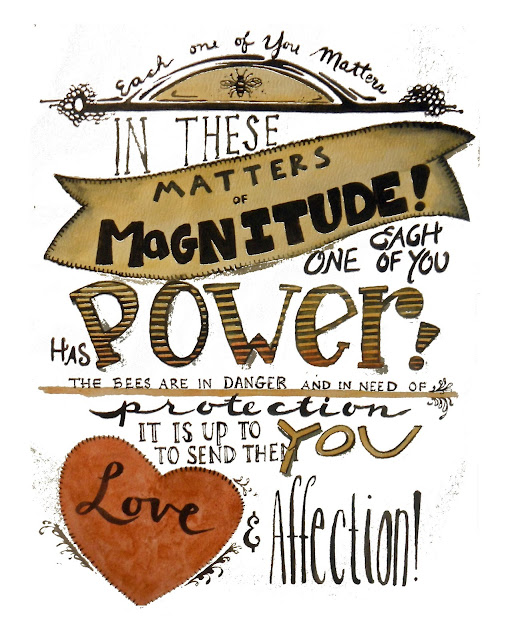 Each one of You Matters
IN THESE
MATTERS
OF
MAGNITUDE!
EACH
ONE OF YOU
HAS POWER!
THE BEES ARE IN DANGER AND IN NEED OF
protection
IT IS UP TO YOU
TO SEND THEM
Love
& Affection!